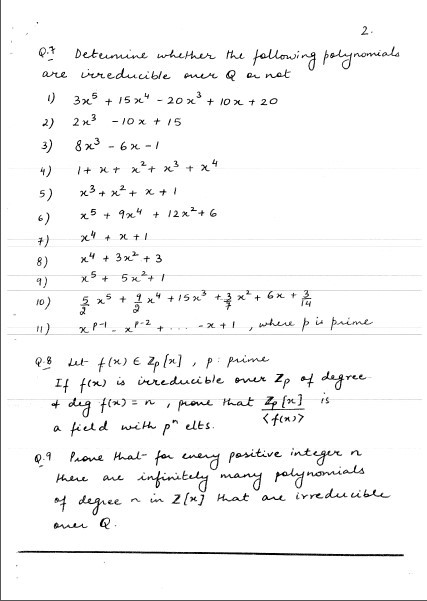 2.
Q.7 Determine whether the following polynomials
are irreducible over Q or not
1) 3x⁵ + 15x⁴ - 20x³ + 10x + 20
2) 2x³ - 10x + 15
3) 8x³ - 6x - 1
4) 1 + x + x² + x³ + x⁴
5) x³ + x² + x + 1
6) x⁵ + 9x⁴ + 12x² + 6
7) x⁴ + x + 1
8) x⁴ + 3x² + 3
9) x⁵ + 5x² + 1
10) 5/2 x⁵ + 9/2 x⁴ + 15x³ + 3/7 x² + 6x + 3/14
11) xᵖ⁻¹ - xᵖ⁻² + ... - x + 1, where p is prime
Q.8 Let f(x) ∈ Zₚ[x], p: prime
If f(x) is irreducible over Zₚ of degree
& deg f(x) = n, prove that Zₚ[x]/<f(x)> is
a field with pⁿ elts.
Q.9 Prove that for every positive integer n
there are infinitely many polynomials
of degree n in Z[x] that are irreducible
over Q.